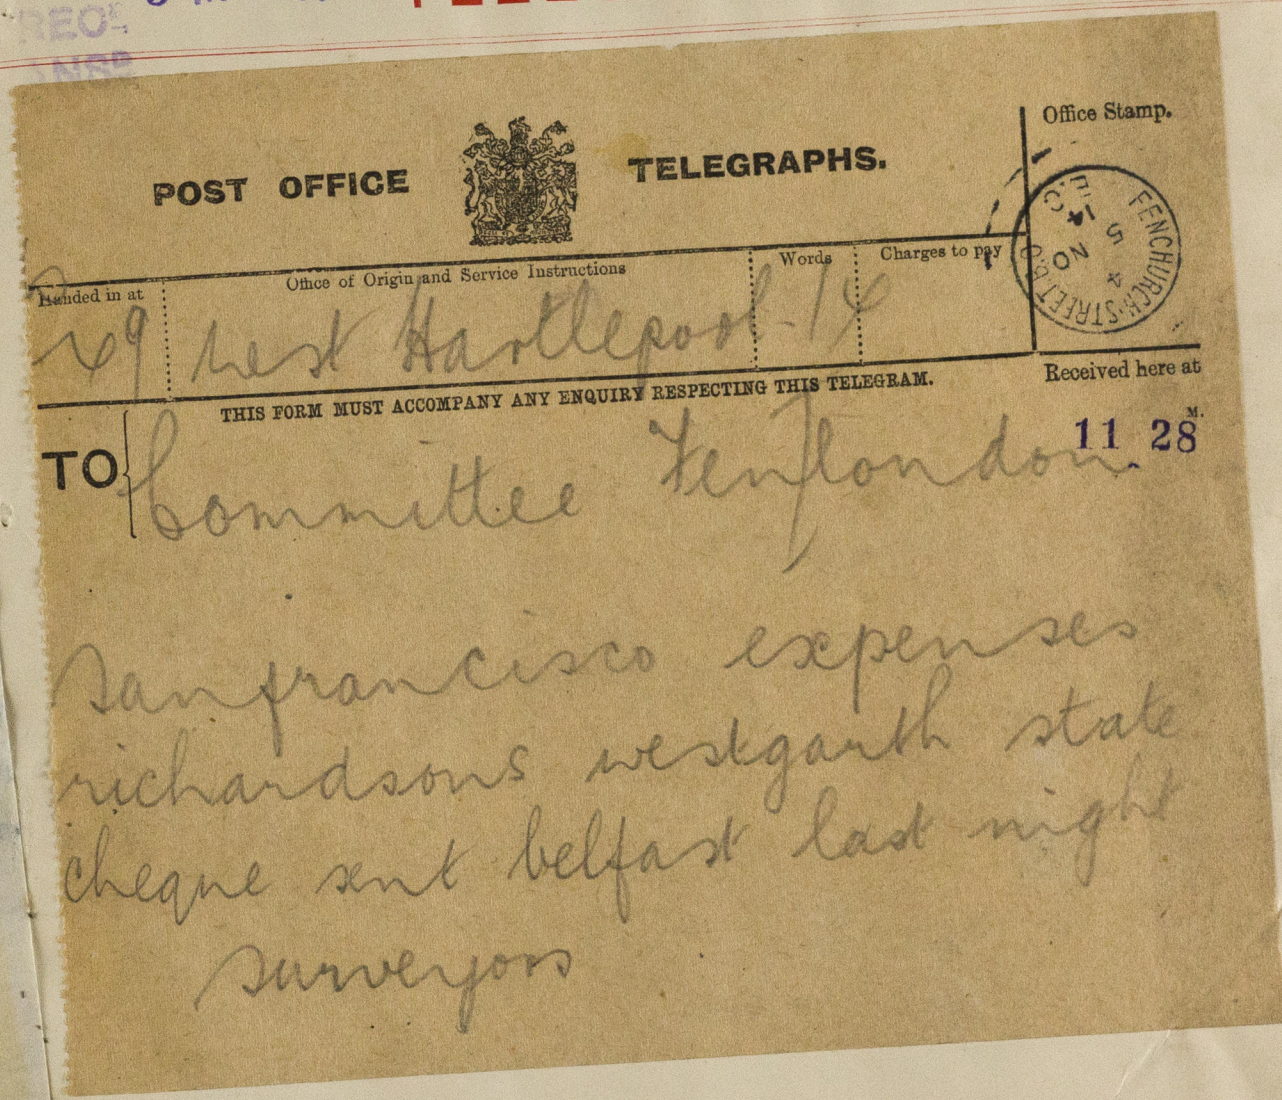 Office Stamp.
POST OFFICE TELEGRAPHS.
FENCHURCH·STREET·B.O. E.C.
5
NO 4
14
Handed in at
Office of Origin and Service Instructions
Words
Charges to pay
West Hartlepool 14
THIS FORM MUST ACCOMPANY ANY ENQUIRY RESPECTING THIS TELEGRAM.
Received here at
11 28 M.
TO Committee Fen london
Sanfrancisco expenses
richardsons westgarth state
cheque sent belfast last night
surveyors